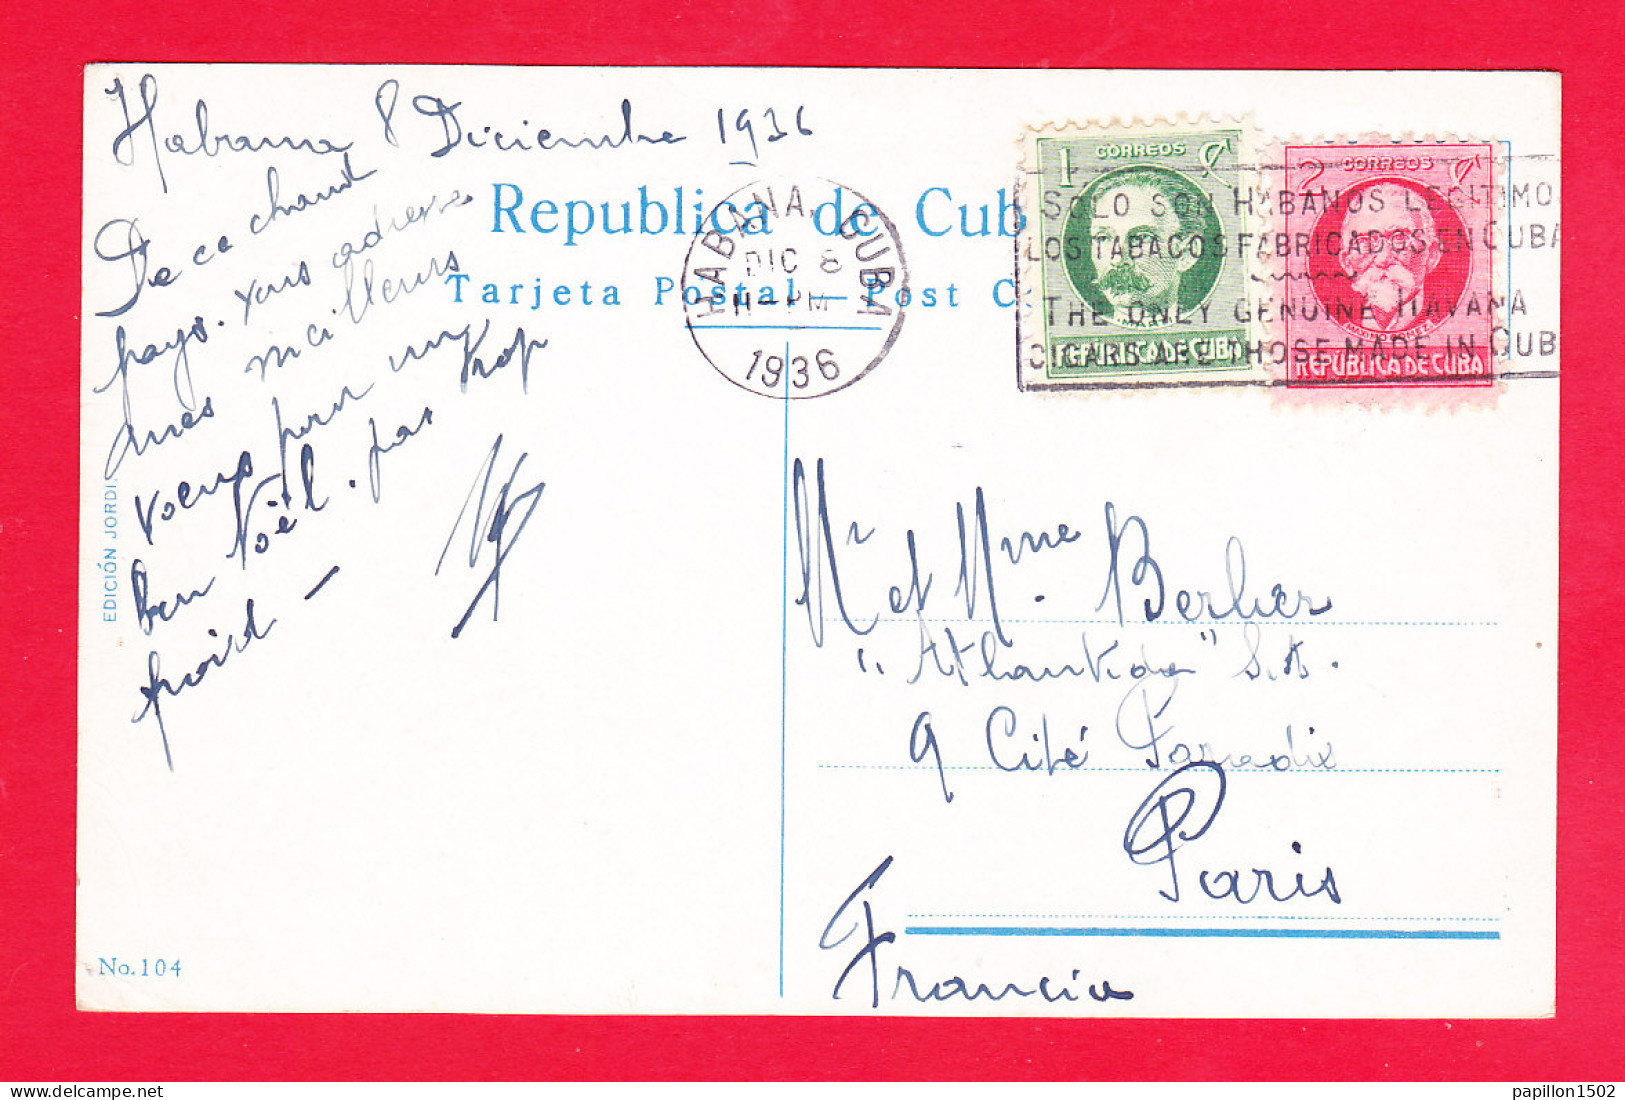 Habana 8 Diciembre 1936
De ce chaud
pays. vous adresse
mes meilleurs
voeux pour un
bon Noël. pas trop
froid –
Republica de Cub
Tarjeta Postal – Post C
HABANA, CUBA
DIC 8
11 – PM
1936
1 CORREOS
MARTI
REPUBLICA DE CUBA
2 CORREOS
MAXIMO GOMEZ
REPUBLICA DE CUBA
SOLO SON HABANOS LEGITIMO
LOS TABACOS FABRICADOS EN CUBA
THE ONLY GENUINE HAVANA
CIGARS ARE THOSE MADE IN CUB
EDICIÓN JORDI.
Mr et Mme. Berlier
"Atlantida" S.A.
9 Cité Paradix
Paris
Francia
No. 104
papillon1502